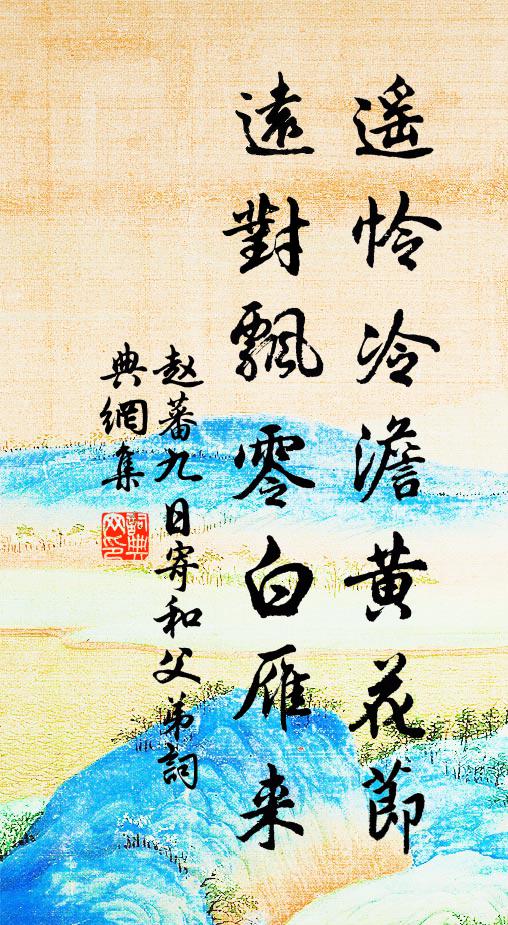 遥怜冷澹黄花節
遠對飄零白雁来
赵蕃九日寄和父弟詞
典網集
詞典網印